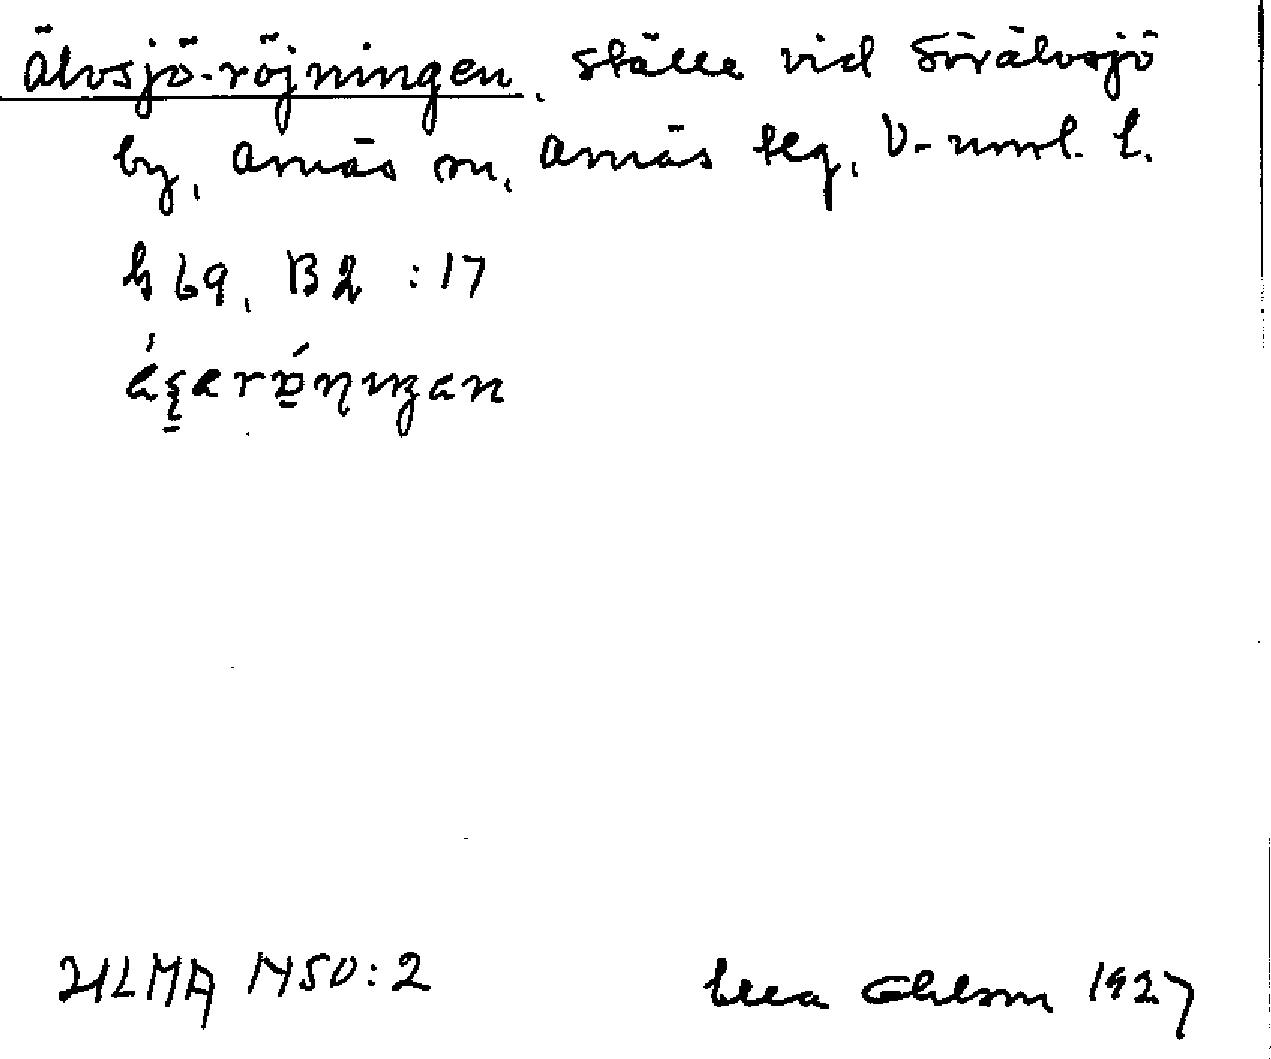 Älvsjö-röjningen. ställe vid Sörälvsjö
by, Arnäs sn, Arnäs tlg, V-nrrl. l.
h 69, B2 :17
ULMA 1450:2 Ohlson 1927